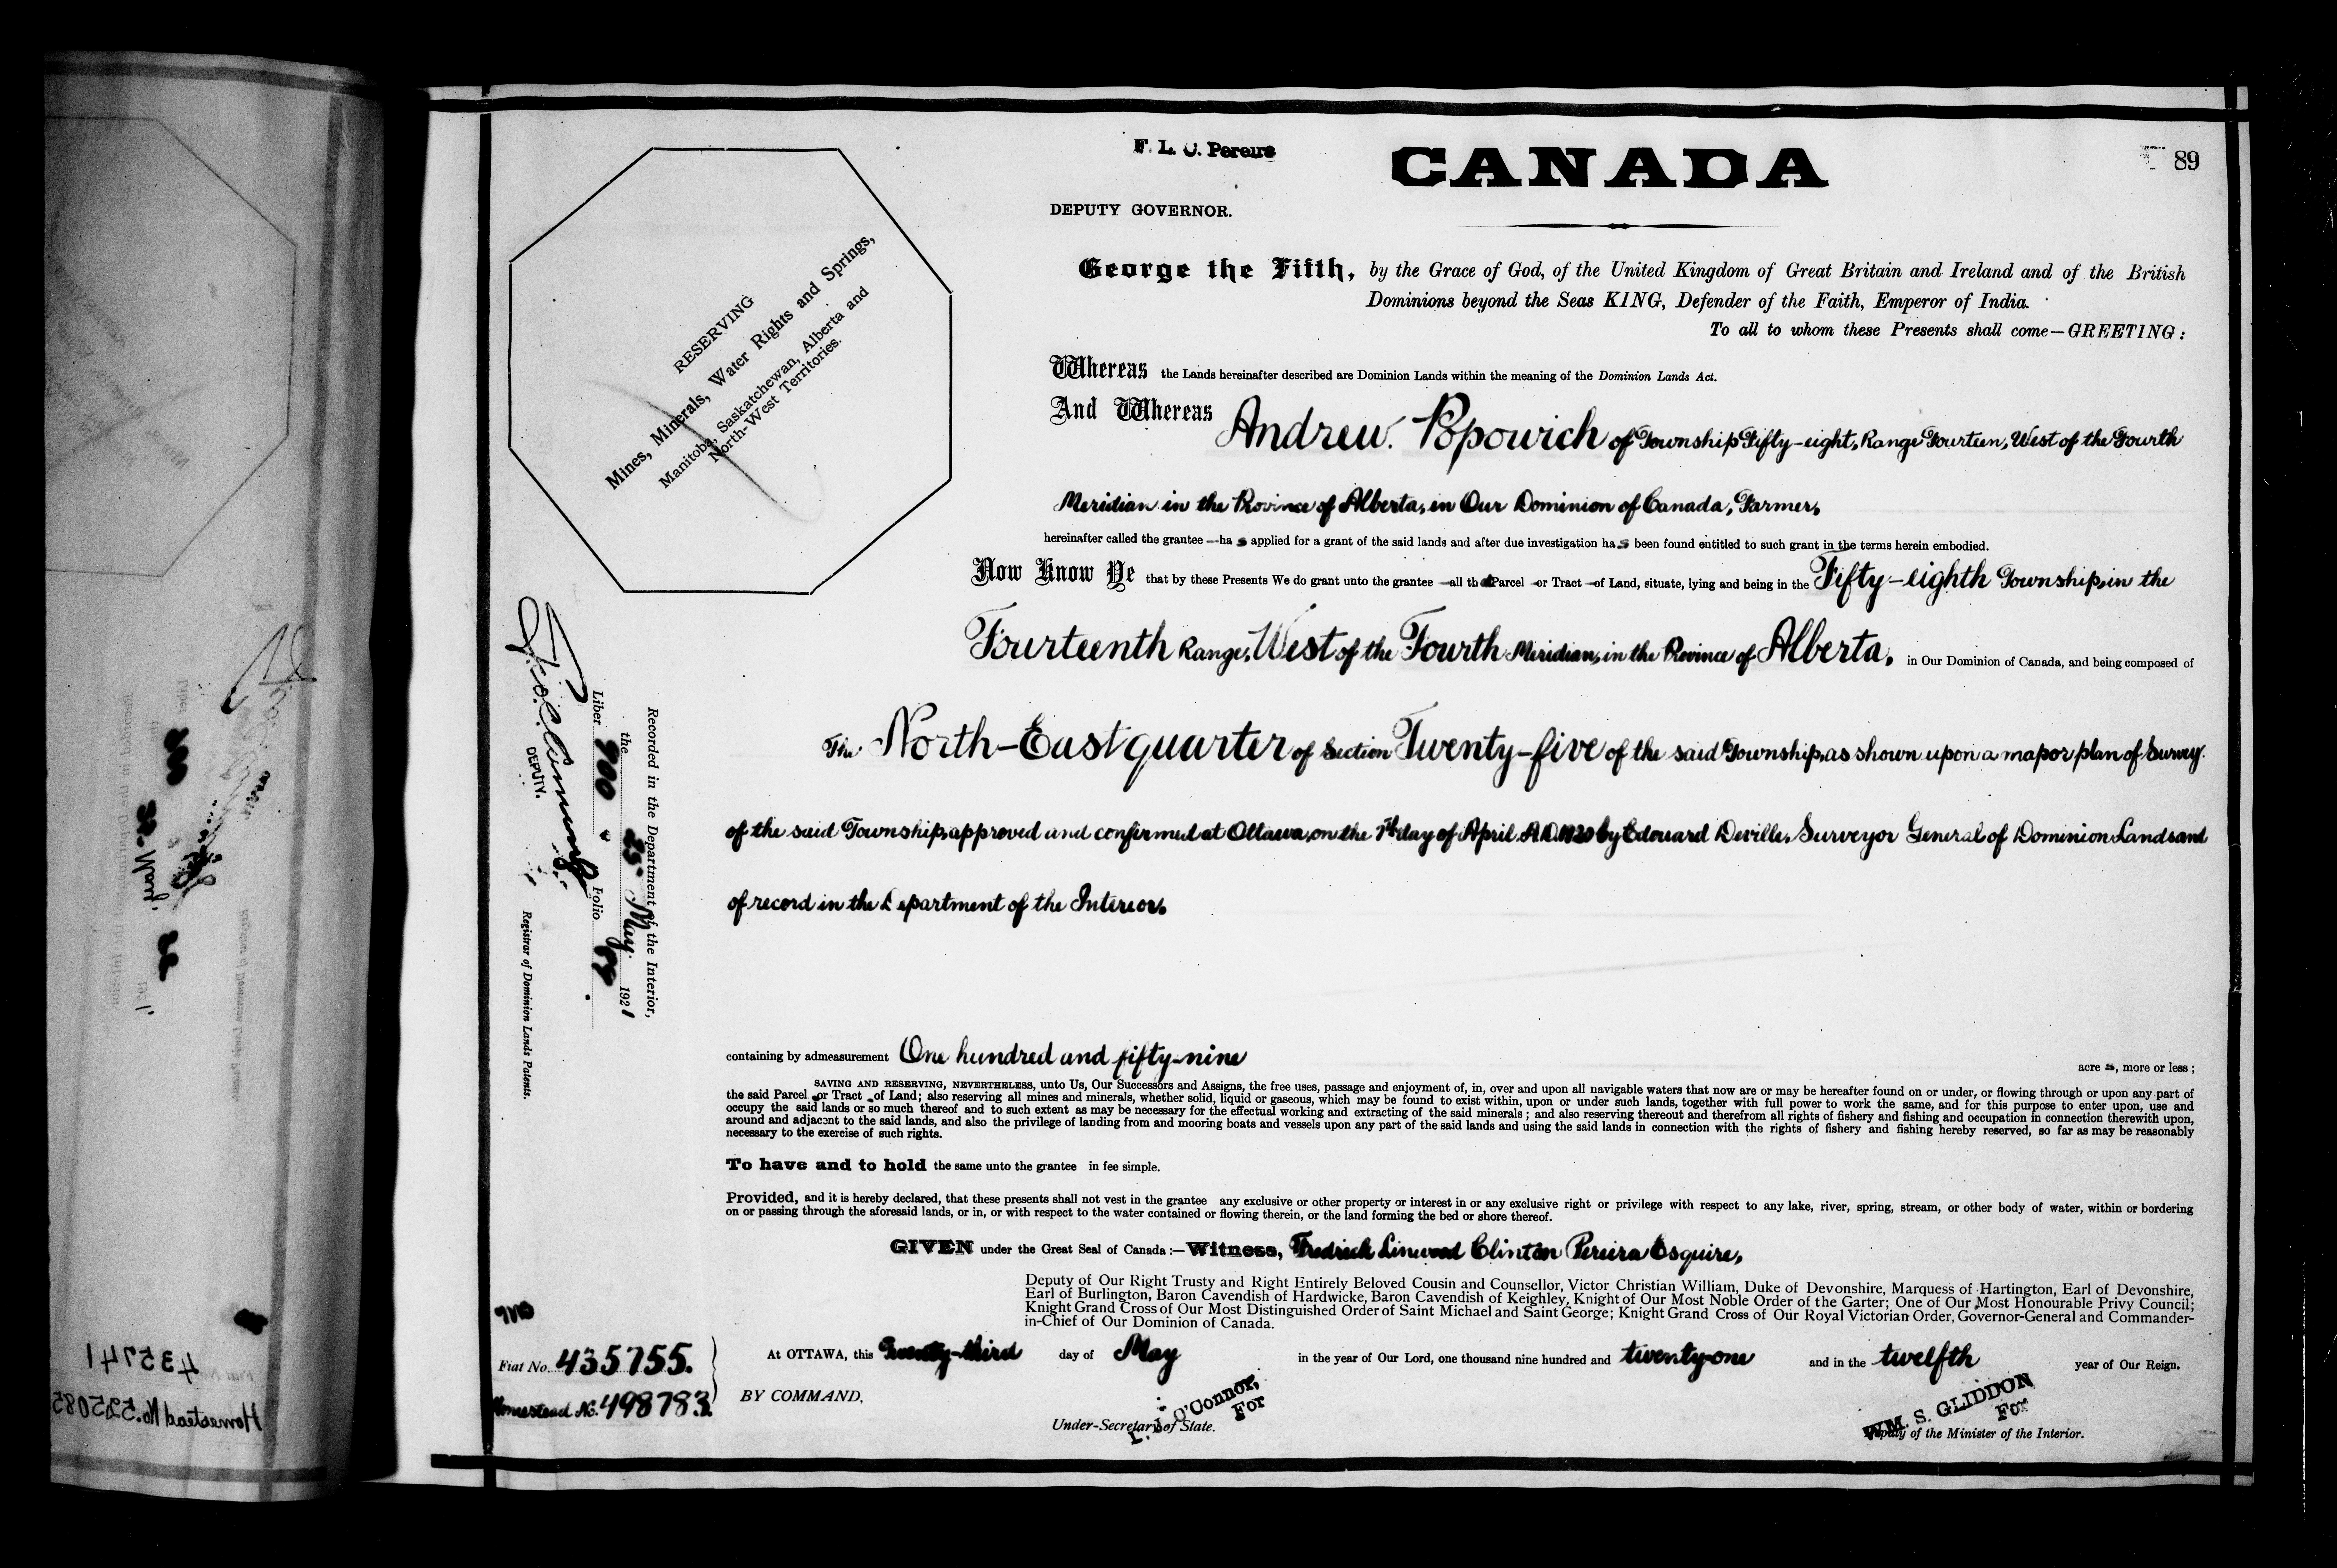 F. L. C. Pereira
CANADA
89
DEPUTY GOVERNOR.
George the Fifth, by the Grace of God, of the United Kingdom of Great Britain and Ireland and of the British
Dominions beyond the Seas KING, Defender of the Faith, Emperor of India.
To all to whom these Presents shall come—GREETING:
RESERVING
Mines, Minerals, Water Rights and Springs,
Manitoba, Saskatchewan, Alberta and
North-West Territories.
Whereas the Lands hereinafter described are Dominion Lands within the meaning of the Dominion Lands Act.
And Whereas Andrew. Popowich of Township Fifty-eight, Range Fourteen, West of the Fourth
Meridian in the Province of Alberta, in Our Dominion of Canada, Farmer,
hereinafter called the grantee — ha s applied for a grant of the said lands and after due investigation ha s been found entitled to such grant in the terms herein embodied.
Now Know Ye that by these Presents We do grant unto the grantee — all that Parcel or Tract of Land, situate, lying and being in the Fifty-eighth Township, in the
Fourteenth Range, West of the Fourth Meridian, in the Province of Alberta, in Our Dominion of Canada, and being composed of
The North-East quarter of Section Twenty-five of the said Township, as shown upon a map or plan of Survey
of the said Township, approved and confirmed at Ottawa, on the day of April A.D. 1920 by Edouard Deville, Surveyor General of Dominion Lands and
of record in the Department of the Interior,
Recorded in the Department of the Interior,
the 25 May 1921
Liber 900 Folio 89
DEPUTY.
Registrar of Dominion Lands Patents.
containing by admeasurement One hundred and fifty-nine acre s, more or less;
SAVING AND RESERVING, NEVERTHELESS, unto Us, Our Successors and Assigns, the free uses, passage and enjoyment of, in, over and upon all navigable waters that now are or may be hereafter found on or under, or flowing through or upon any part of
the said Parcel or Tract of Land; also reserving all mines and minerals, whether solid, liquid or gaseous, which may be found to exist within, upon or under such lands, together with full power to work the same, and for this purpose to enter upon, use and
occupy the said lands or so much thereof and to such extent as may be necessary for the effectual working and extracting of the said minerals; and also reserving thereout and therefrom all rights of fishery and fishing and occupation in connection therewith upon,
around and adjacent to the said lands, and also the privilege of landing from and mooring boats and vessels upon any part of the said lands and using the said lands in connection with the rights of fishery and fishing hereby reserved, so far as may be reasonably
necessary to the exercise of such rights.
To have and to hold the same unto the grantee in fee simple.
Provided, and it is hereby declared, that these presents shall not vest in the grantee any exclusive or other property or interest in or any exclusive right or privilege with respect to any lake, river, spring, stream, or other body of water, within or bordering
on or passing through the aforesaid lands, or in, or with respect to the water contained or flowing therein, or the land forming the bed or shore thereof.
GIVEN under the Great Seal of Canada:—Witness, Fredrick Linwood Clinton Pereira Esquire,
Deputy of Our Right Trusty and Right Entirely Beloved Cousin and Counsellor, Victor Christian William, Duke of Devonshire, Marquess of Hartington, Earl of Devonshire,
Earl of Burlington, Baron Cavendish of Hardwicke, Baron Cavendish of Keighley, Knight of Our Most Noble Order of the Garter; One of Our Most Honourable Privy Council;
Knight Grand Cross of Our Most Distinguished Order of Saint Michael and Saint George; Knight Grand Cross of Our Royal Victorian Order, Governor-General and Commander-
in-Chief of Our Dominion of Canada.
At OTTAWA, this Twenty-third day of May in the year of Our Lord, one thousand nine hundred and twenty-one and in the twelfth year of Our Reign.
Fiat No. 435755.
Homestead No. 498783.
BY COMMAND,
O'Connor,
For
Under-Secretary of State.
WM. S. GLIDDON
For
Deputy of the Minister of the Interior.
435741
Homestead No. 525085